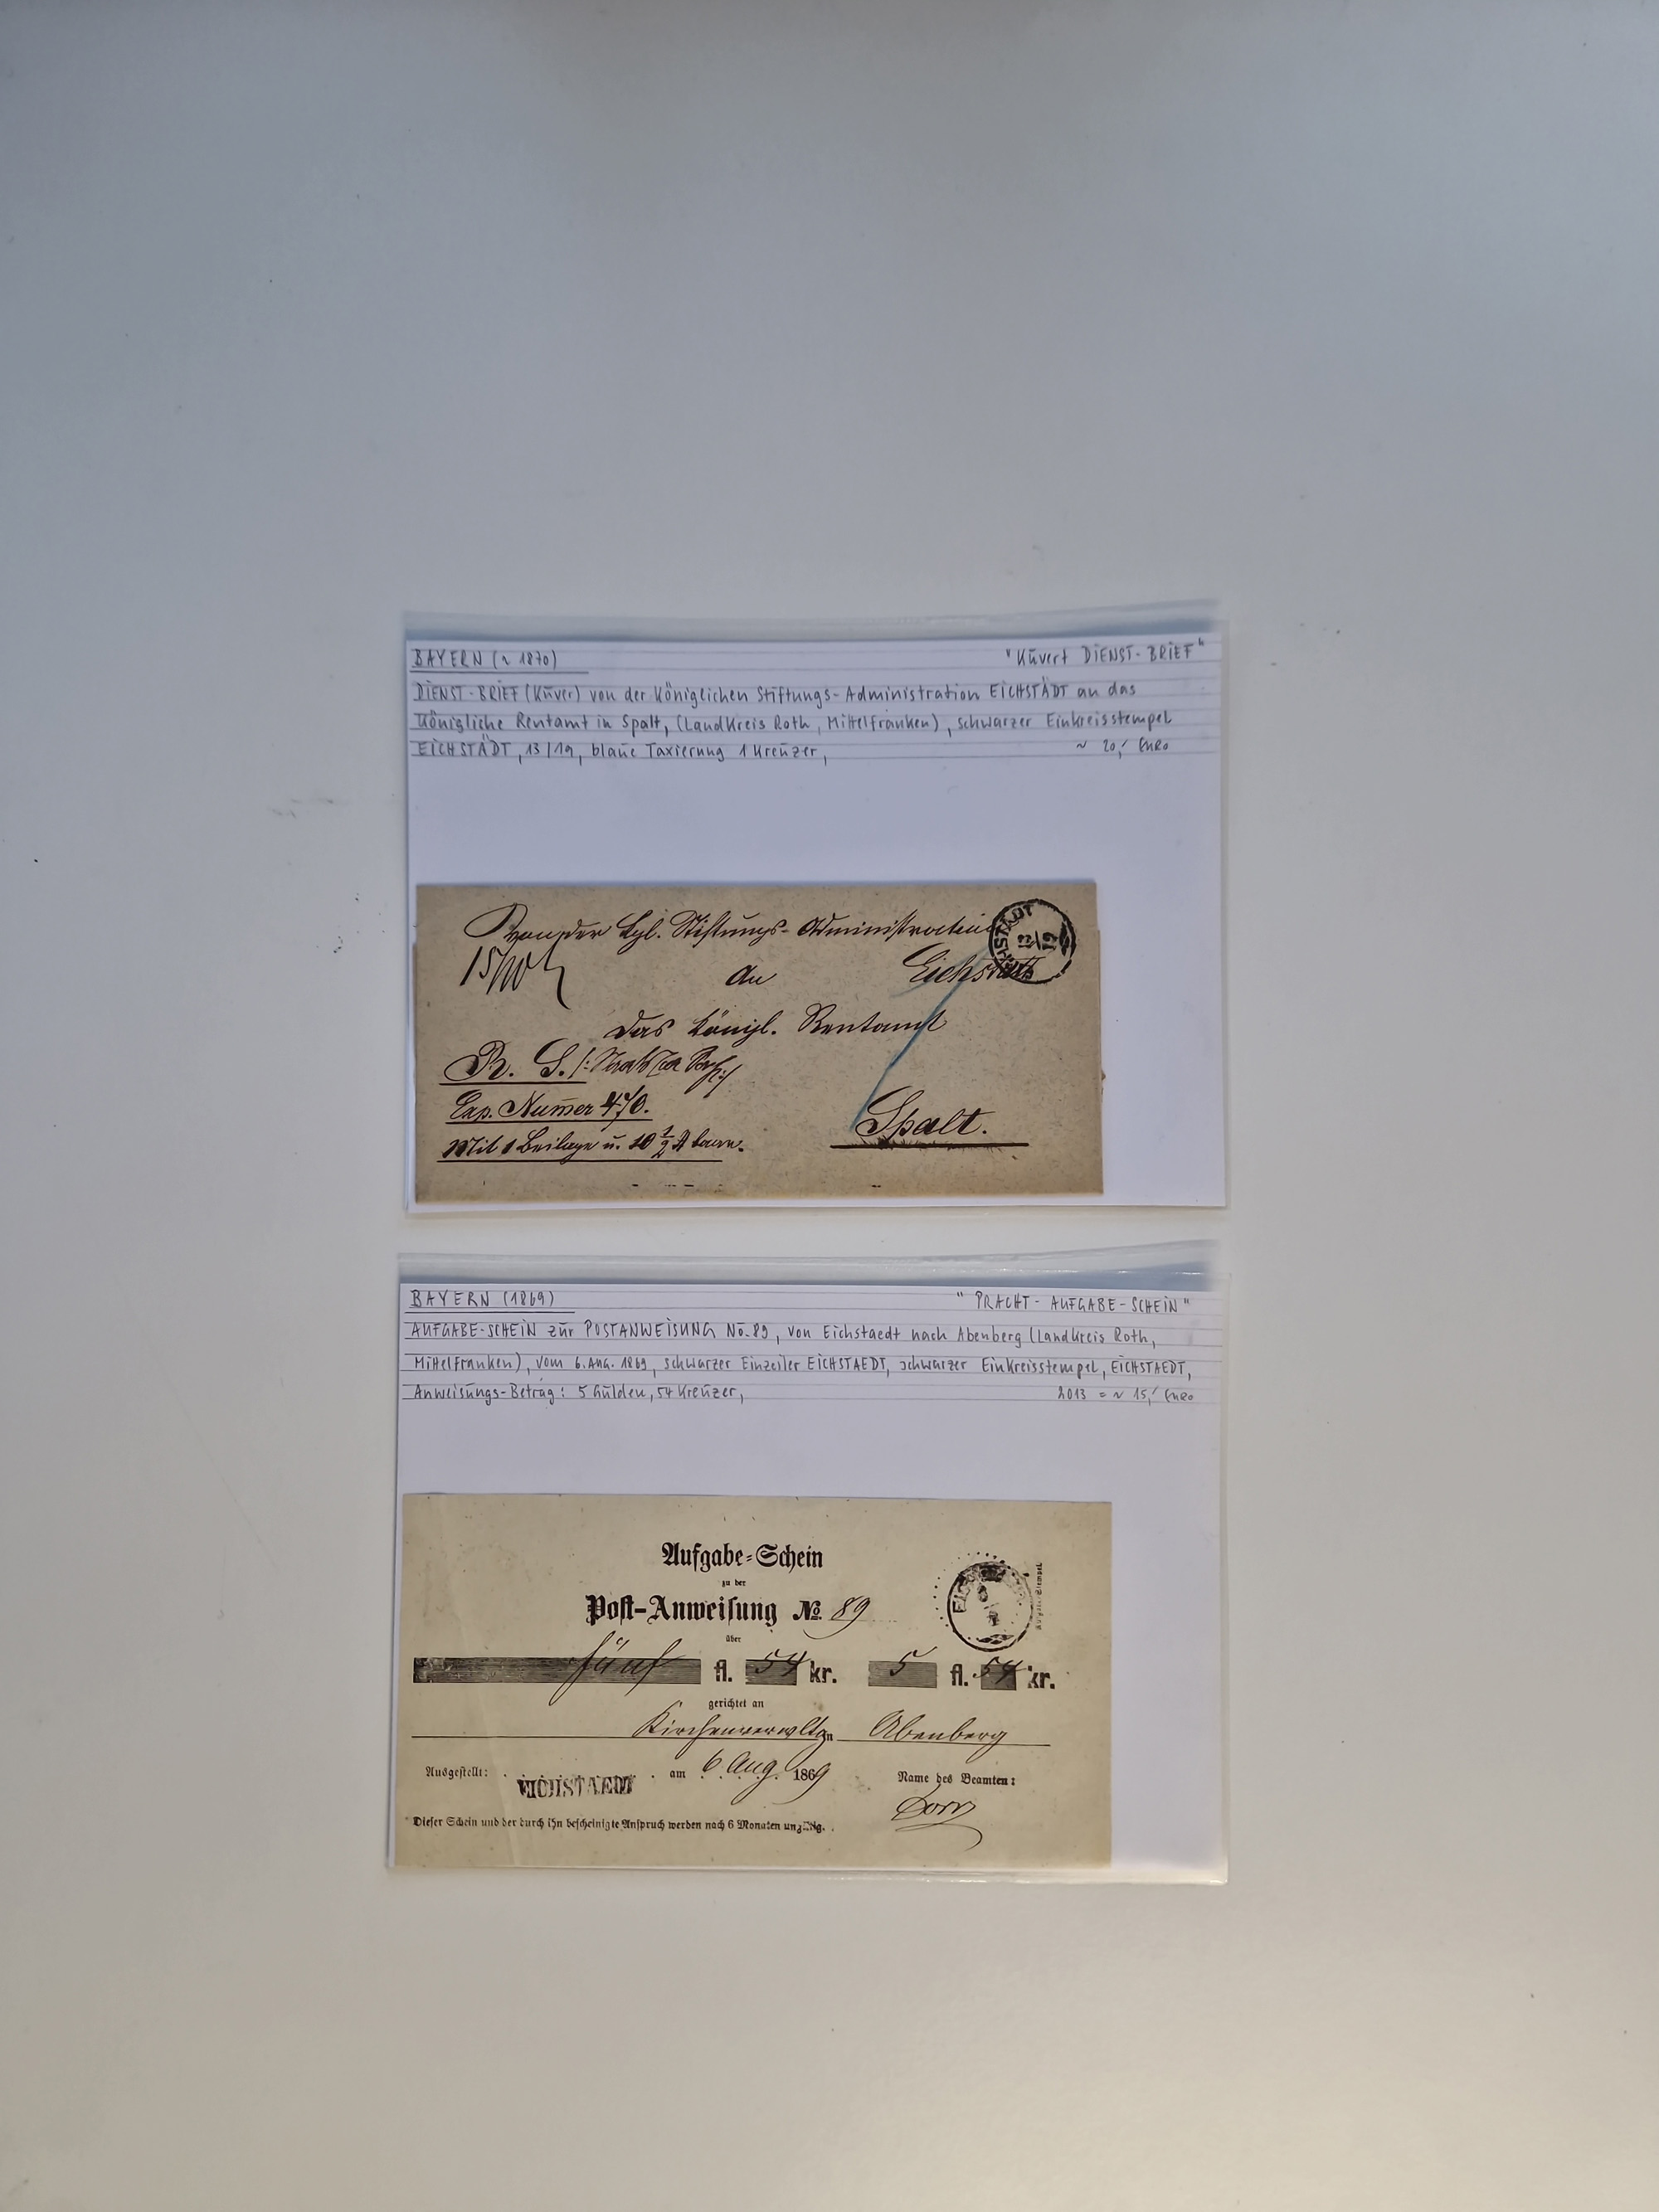 BAYERN (~ 1870)
"Kuvert DIENST-BRIEF"
DIENST-BRIEF (Kuver) von der Königlichen Stiftungs-Administration EICHSTÄDT an das
Königliche Rentamt in Spalt, (Landkreis Roth, Mittelfranken), schwarzer Einkreisstempel
EICHSTÄDT, 13/19, blaue Taxierung 1 Kreuzer,
~ 20,- Euro
Von der Kgl. Stiftungs-Administration
An
Eichstätt
das Königl. Rentamt
R. S.
Exp. Numer 470.
Mit 1 Beilage u.
Spalt.
BAYERN (1869)
"PRACHT-AUFGABE-SCHEIN"
AUFGABE-SCHEIN zur POSTANWEISUNG No. 89, von Eichstaedt nach Abenberg (Landkreis Roth,
Mittelfranken), vom 6. AUG. 1869, schwarzer Einzeiler EICHSTAEDT, schwarzer Einkreisstempel, EICHSTAEDT,
Anweisungs-Betrag: 5 Gulden, 54 Kreuzer,
2013 = ~ 15,- Euro
Aufgabe-Schein
zu der
Post-Anweisung No. 89
über
fünf fl. 54 kr. 5 fl. 54 kr.
gerichtet an
Kirchenverwltgn Abenberg
Ausgestellt: EICHSTAEDT am 6 Aug. 1869
Name des Beamten:
Dieser Schein und der durch ihn bescheinigte Anspruch werden nach 6 Monaten ungültig.